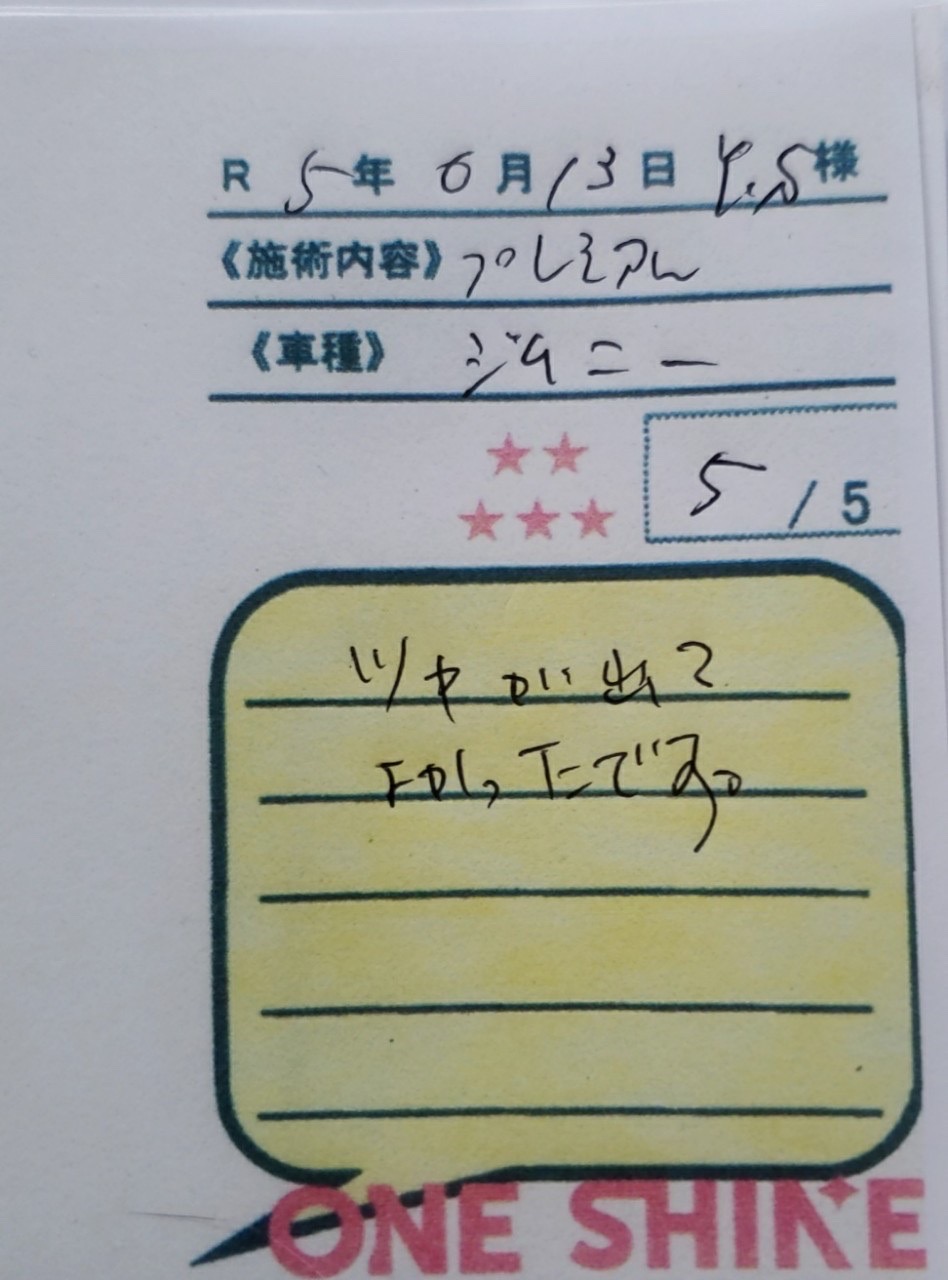 R 5年 6月 13日 Y.S様
《施術内容》プレミアム
《車種》 ジムニー
★★
★★★
5 / 5
ツヤが出て
よかったです。
ONE SHINE